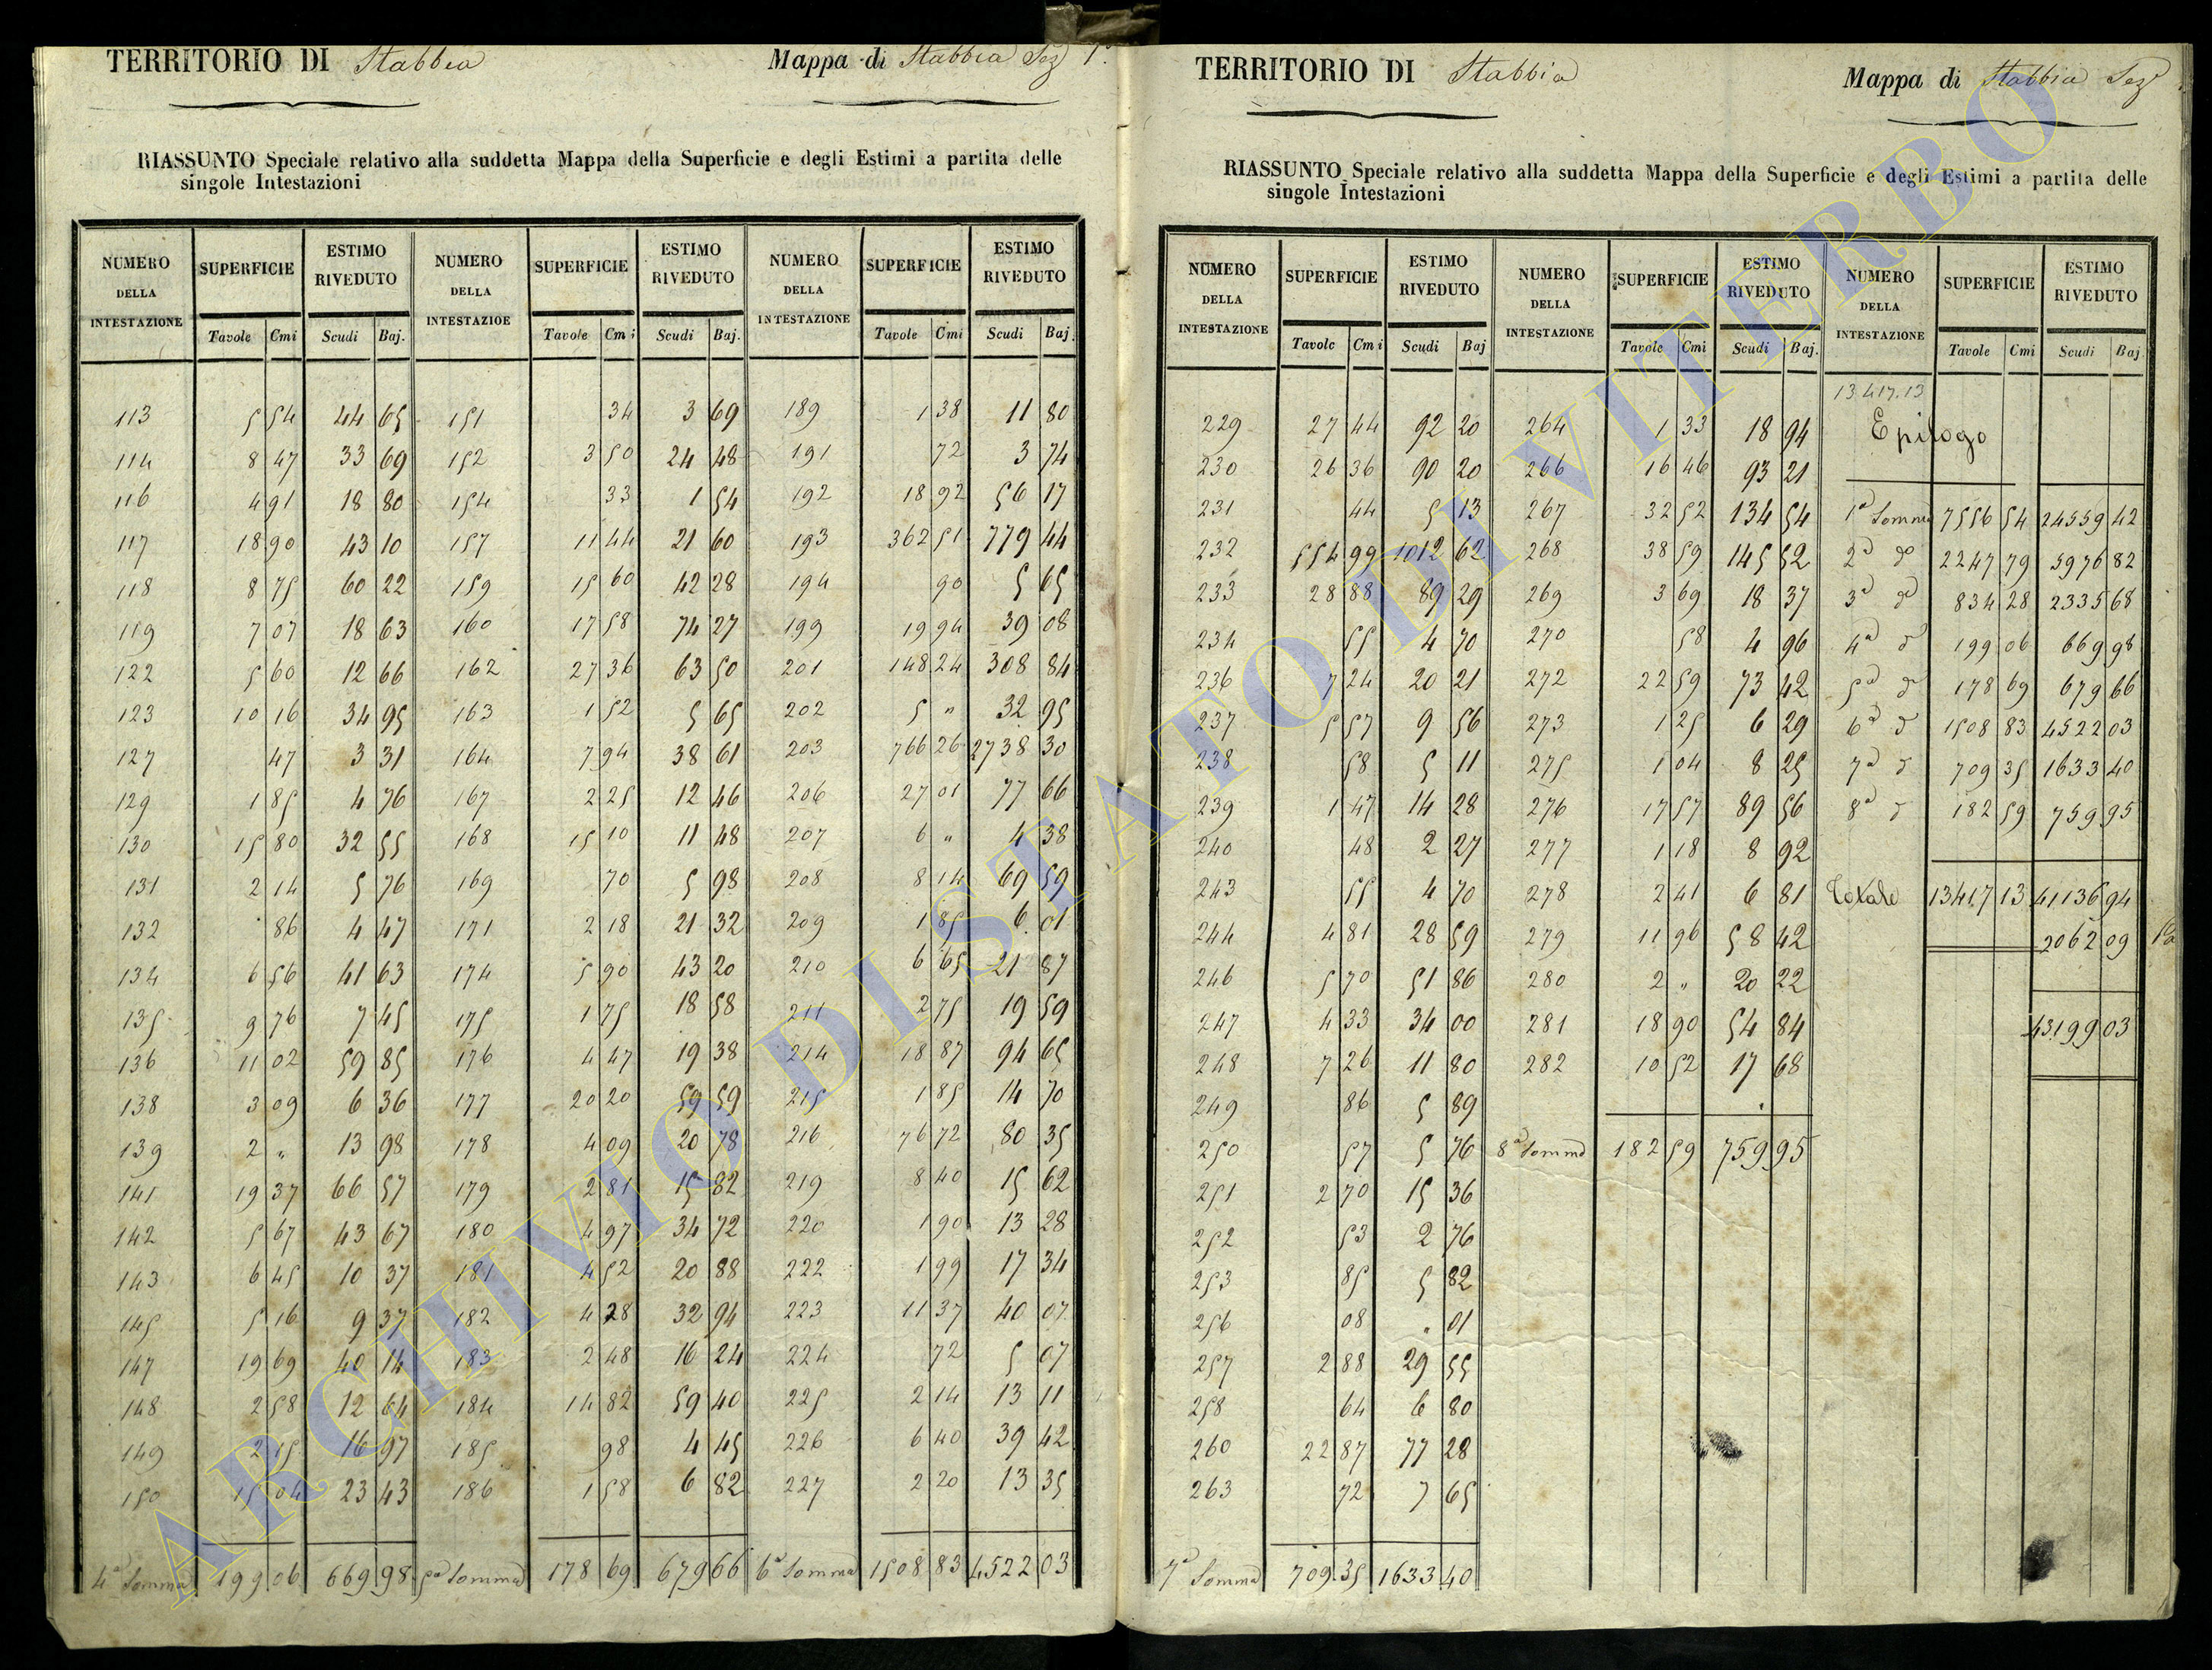 TERRITORIO DI Stabbia Mappa di Stabbia Sez 1ª
RIASSUNTO Speciale relativo alla suddetta Mappa della Superficie e degli Estimi a partita delle
singole Intestazioni
NUMERO DELLA INTESTAZIONE SUPERFICIE ESTIMO RIVEDUTO NUMERO DELLA INTESTAZIOE SUPERFICIE ESTIMO RIVEDUTO NUMERO DELLA INTESTAZIONE SUPERFICIE ESTIMO RIVEDUTO
Tavole Cmi Scudi Baj. Tavole Cmi Scudi Baj. Tavole Cmi Scudi Baj.
113 5 54 44 65 151 34 3 69 189 1 38 11 80
114 8 47 33 69 152 3 50 24 48 191 72 3 74
116 4 91 18 80 154 33 1 54 192 18 92 56 17
117 18 90 43 10 157 11 44 21 60 193 362 51 779 44
118 8 75 60 22 159 15 60 42 28 194 90 5 65
119 7 07 18 63 160 17 58 74 27 199 19 94 39 08
122 5 60 12 66 162 27 36 63 50 201 148 24 308 84
123 10 16 34 95 163 1 52 5 65 202 5 " 32 95
127 47 3 31 164 7 94 38 61 203 766 26 2738 30
129 1 85 4 76 167 2 25 12 46 206 27 01 77 66
130 15 80 32 55 168 15 10 11 48 207 6 " 4 38
131 2 14 5 76 169 70 5 98 208 8 14 69 59
132 86 4 47 171 2 18 21 32 209 1 85 6 01
134 6 56 41 63 174 5 90 43 20 210 6 65 21 87
135 9 76 7 45 175 1 75 18 58 211 2 75 19 59
136 11 02 59 85 176 4 47 19 38 214 18 87 94 65
138 3 09 6 36 177 20 20 59 59 215 1 85 14 70
139 2 " 13 98 178 4 09 20 78 216 76 72 80 35
141 19 37 66 57 179 2 81 15 82 219 8 40 15 62
142 5 67 43 67 180 4 97 34 72 220 1 90 13 28
143 6 45 10 37 181 4 52 20 88 222 1 99 17 34
145 5 16 9 37 182 4 28 32 94 223 11 37 40 07
147 19 69 40 14 183 2 48 16 24 224 72 5 07
148 2 58 12 64 184 14 82 59 40 225 2 14 13 11
149 2 15 16 97 185 98 4 45 226 6 40 39 42
150 15 04 23 43 186 1 58 6 82 227 2 20 13 35
4ª Somma 199 06 669 98 5ª Somma 178 69 679 66 6ª Somma 1508 83 4522 03
TERRITORIO DI Stabbia Mappa di Stabbia Sez
RIASSUNTO Speciale relativo alla suddetta Mappa della Superficie e degli Estimi a partita delle
singole Intestazioni
NUMERO DELLA INTESTAZIONE SUPERFICIE ESTIMO RIVEDUTO NUMERO DELLA INTESTAZIONE SUPERFICIE ESTIMO RIVEDUTO NUMERO DELLA INTESTAZIONE SUPERFICIE ESTIMO RIVEDUTO
Tavole Cmi Scudi Baj Tavole Cmi Scudi Baj. Tavole Cmi Scudi Baj.
13417.13
229 27 44 92 20 264 1 33 18 94 Epilogo
230 26 36 90 20 266 16 46 93 21
231 44 5 13 267 32 52 134 54 1ª Somma 7556 54 24559 42
232 554 99 1012 62 268 38 59 145 52 2ª dº 2247 79 5976 82
233 28 88 89 29 269 3 69 18 37 3ª dº 834 28 2335 68
234 55 4 70 270 58 4 96 4ª d 199 06 669 98
236 7 24 20 21 272 22 59 73 42 5ª d 178 69 679 66
237 5 57 9 56 273 1 25 6 29 6ª d 1508 83 4522 03
238 58 5 11 275 1 04 8 25 7ª d 709 35 1633 40
239 1 47 14 28 276 17 57 89 56 8ª d 182 59 759 95
240 48 2 27 277 1 18 8 92
243 55 4 70 278 2 41 6 81 Totale 13417 13 41136 94
244 4 81 28 59 279 11 96 58 42 2062 09
246 5 70 51 86 280 2 " 20 22
247 4 33 34 00 281 18 90 54 84 43199 03
248 7 26 11 80 282 10 52 17 68
249 86 5 89
250 57 5 76 8ª Somma 182 59 759 95
251 2 70 15 36
252 53 2 76
253 85 5 82
256 08 " 01
257 2 88 29 55
258 64 6 80
260 22 87 77 28
263 72 7 65
7ª Somma 709 35 1633 40
ARCHIVIO DI STATO DI VITERBO